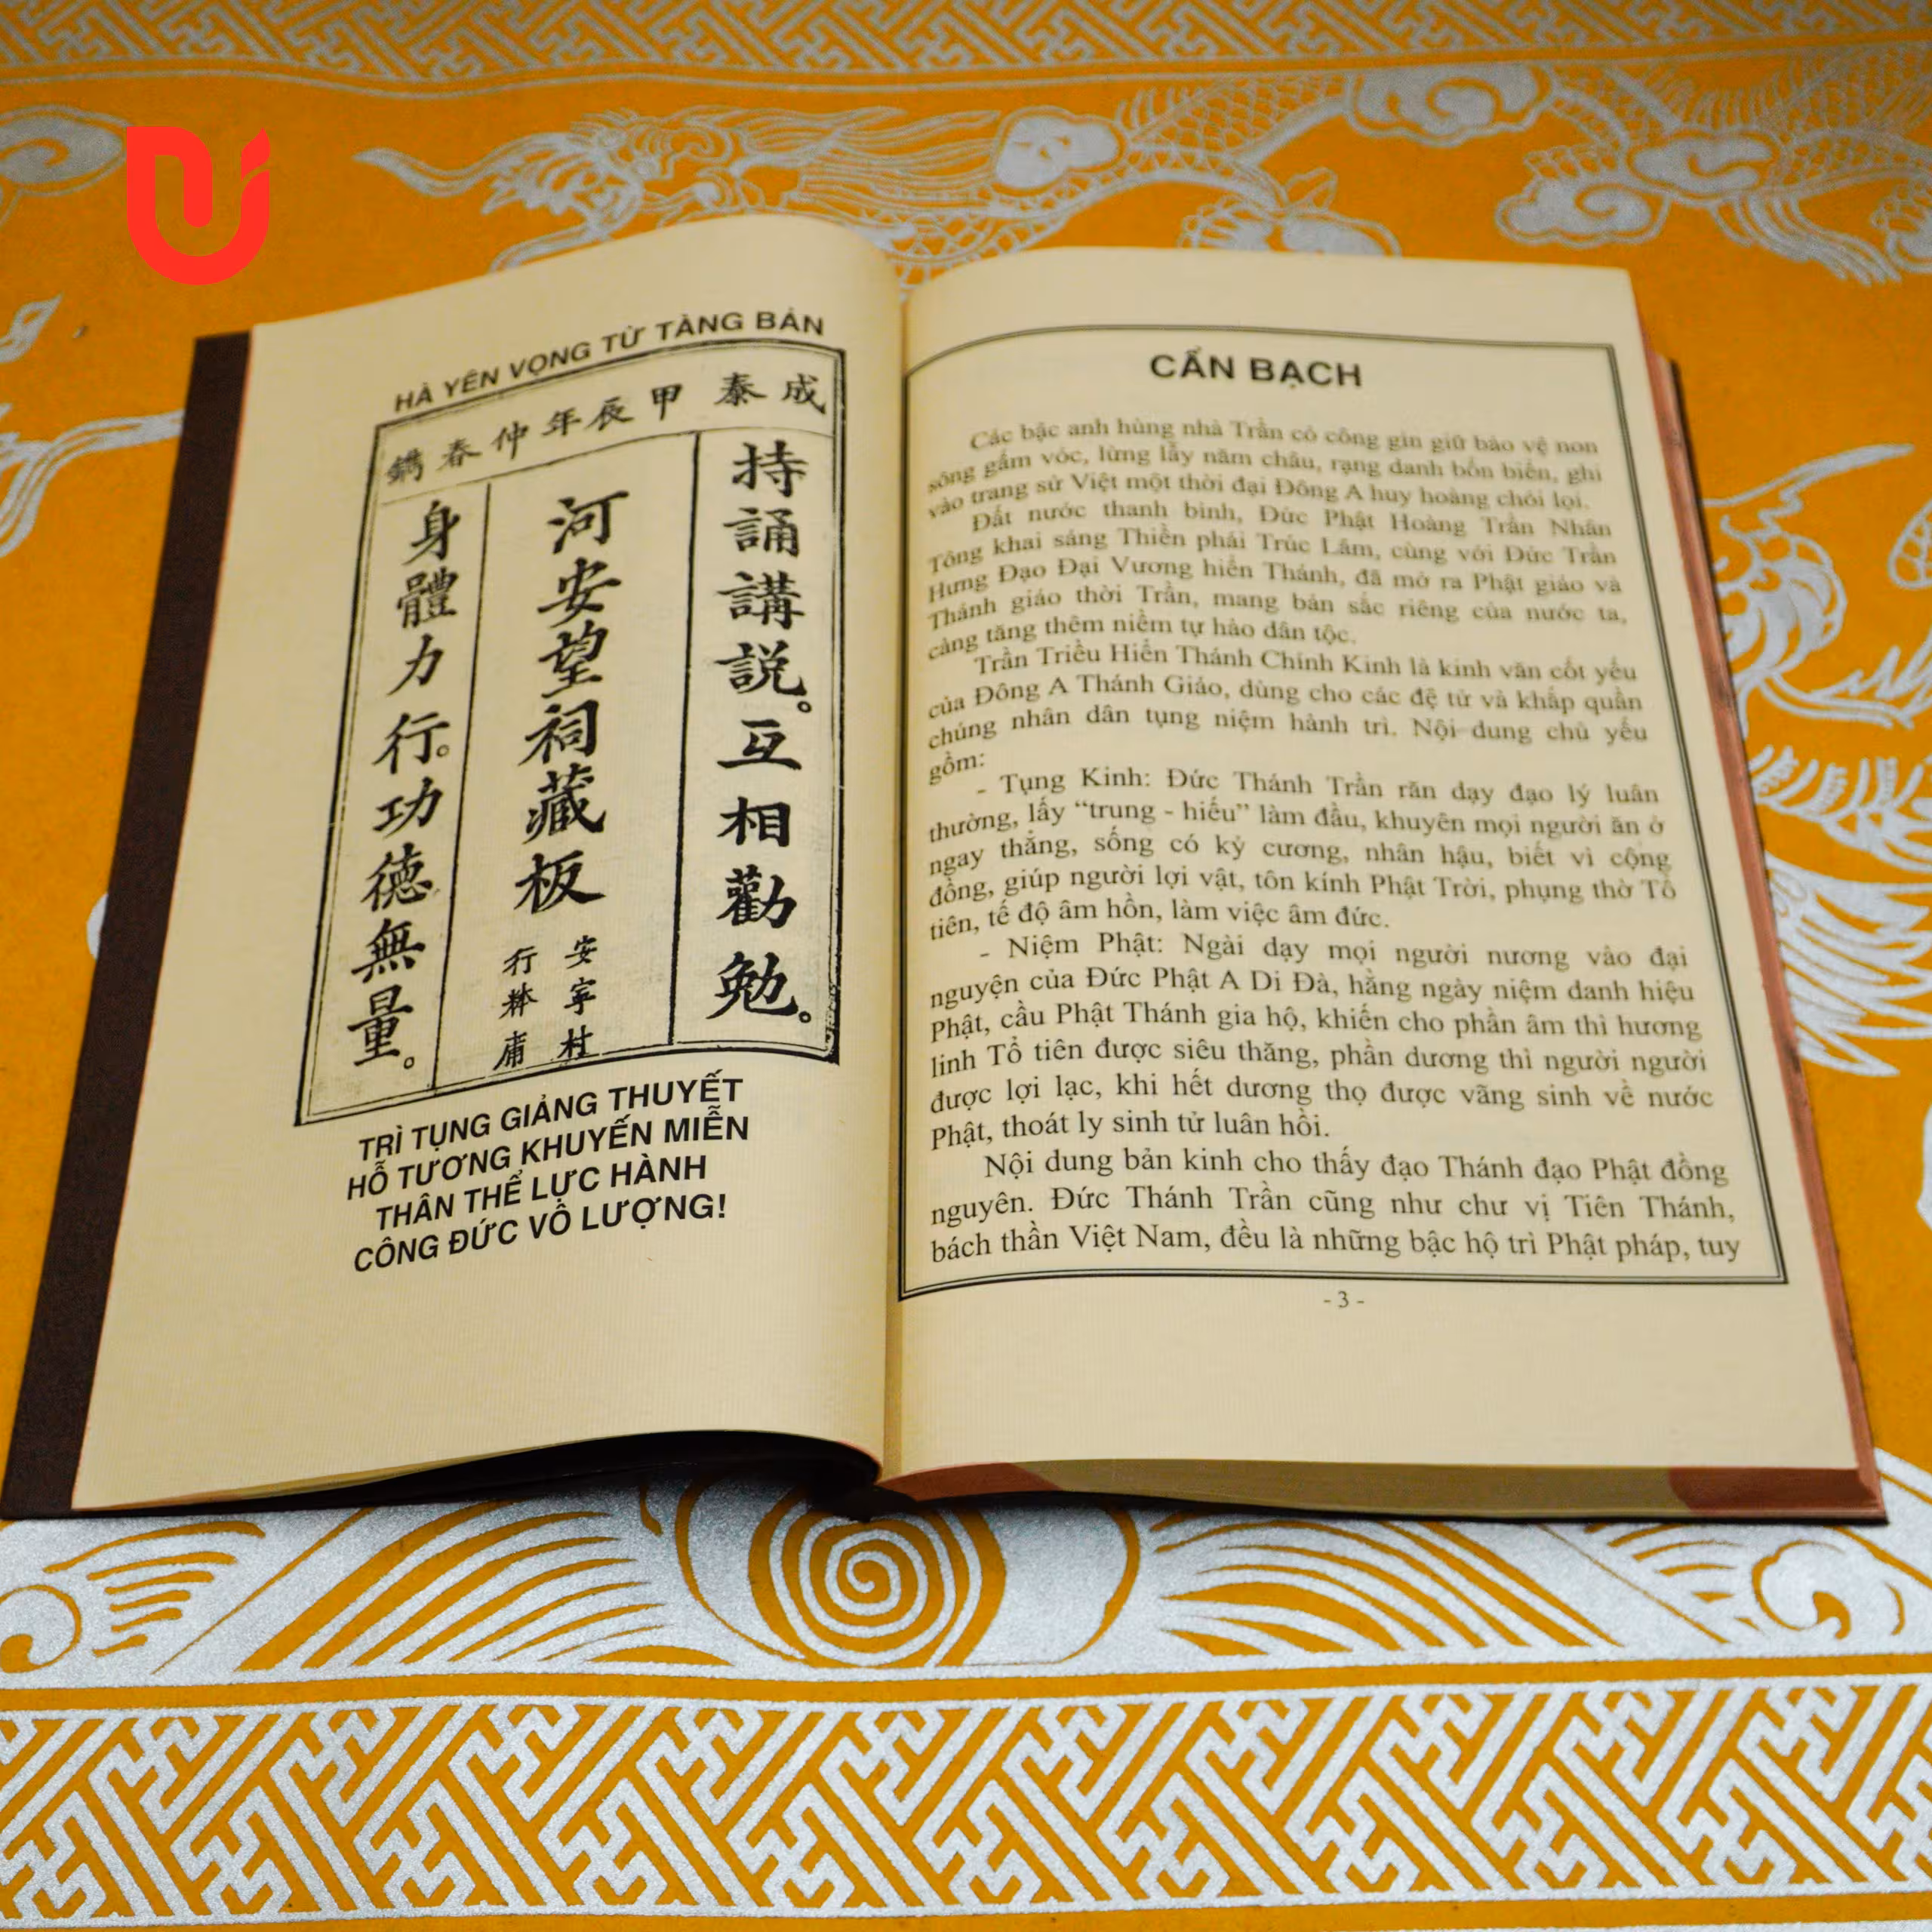 HÀ YÊN VỌNG TỪ TÀNG BẢN
成泰甲辰年仲春鐫
持誦講説。互相勸勉。
河安望祠藏板
安寧村
行 庯
身體力行。功德無量。
TRÌ TỤNG GIẢNG THUYẾT
HỖ TƯƠNG KHUYẾN MIỄN
THÂN THỂ LỰC HÀNH
CÔNG ĐỨC VÔ LƯỢNG!
CẨN BẠCH
Các bậc anh hùng nhà Trần có công gìn giữ bảo vệ non
sông gấm vóc, lừng lẫy năm châu, rạng danh bốn biển, ghi
vào trang sử Việt một thời đại Đông A huy hoàng chói lọi.
Đất nước thanh bình, Đức Phật Hoàng Trần Nhân
Tông khai sáng Thiền phái Trúc Lâm, cùng với Đức Trần
Hưng Đạo Đại Vương hiển Thánh, đã mở ra Phật giáo và
Thánh giáo thời Trần, mang bản sắc riêng của nước ta,
càng tăng thêm niềm tự hào dân tộc.
Trần Triều Hiển Thánh Chính Kinh là kinh văn cốt yếu
của Đông A Thánh Giáo, dùng cho các đệ tử và khắp quần
chúng nhân dân tụng niệm hành trì. Nội dung chủ yếu
gồm:
- Tụng Kinh: Đức Thánh Trần răn dạy đạo lý luân
thường, lấy “trung - hiếu” làm đầu, khuyên mọi người ăn ở
ngay thẳng, sống có kỷ cương, nhân hậu, biết vì cộng
đồng, giúp người lợi vật, tôn kính Phật Trời, phụng thờ Tổ
tiên, tế độ âm hồn, làm việc âm đức.
- Niệm Phật: Ngài dạy mọi người nương vào đại
nguyện của Đức Phật A Di Đà, hằng ngày niệm danh hiệu
Phật, cầu Phật Thánh gia hộ, khiến cho phần âm thì hương
linh Tổ tiên được siêu thăng, phần dương thì người người
được lợi lạc, khi hết dương thọ được vãng sinh về nước
Phật, thoát ly sinh tử luân hồi.
Nội dung bản kinh cho thấy đạo Thánh đạo Phật đồng
nguyên. Đức Thánh Trần cũng như chư vị Tiên Thánh,
bách thần Việt Nam, đều là những bậc hộ trì Phật pháp, tuy
- 3 -